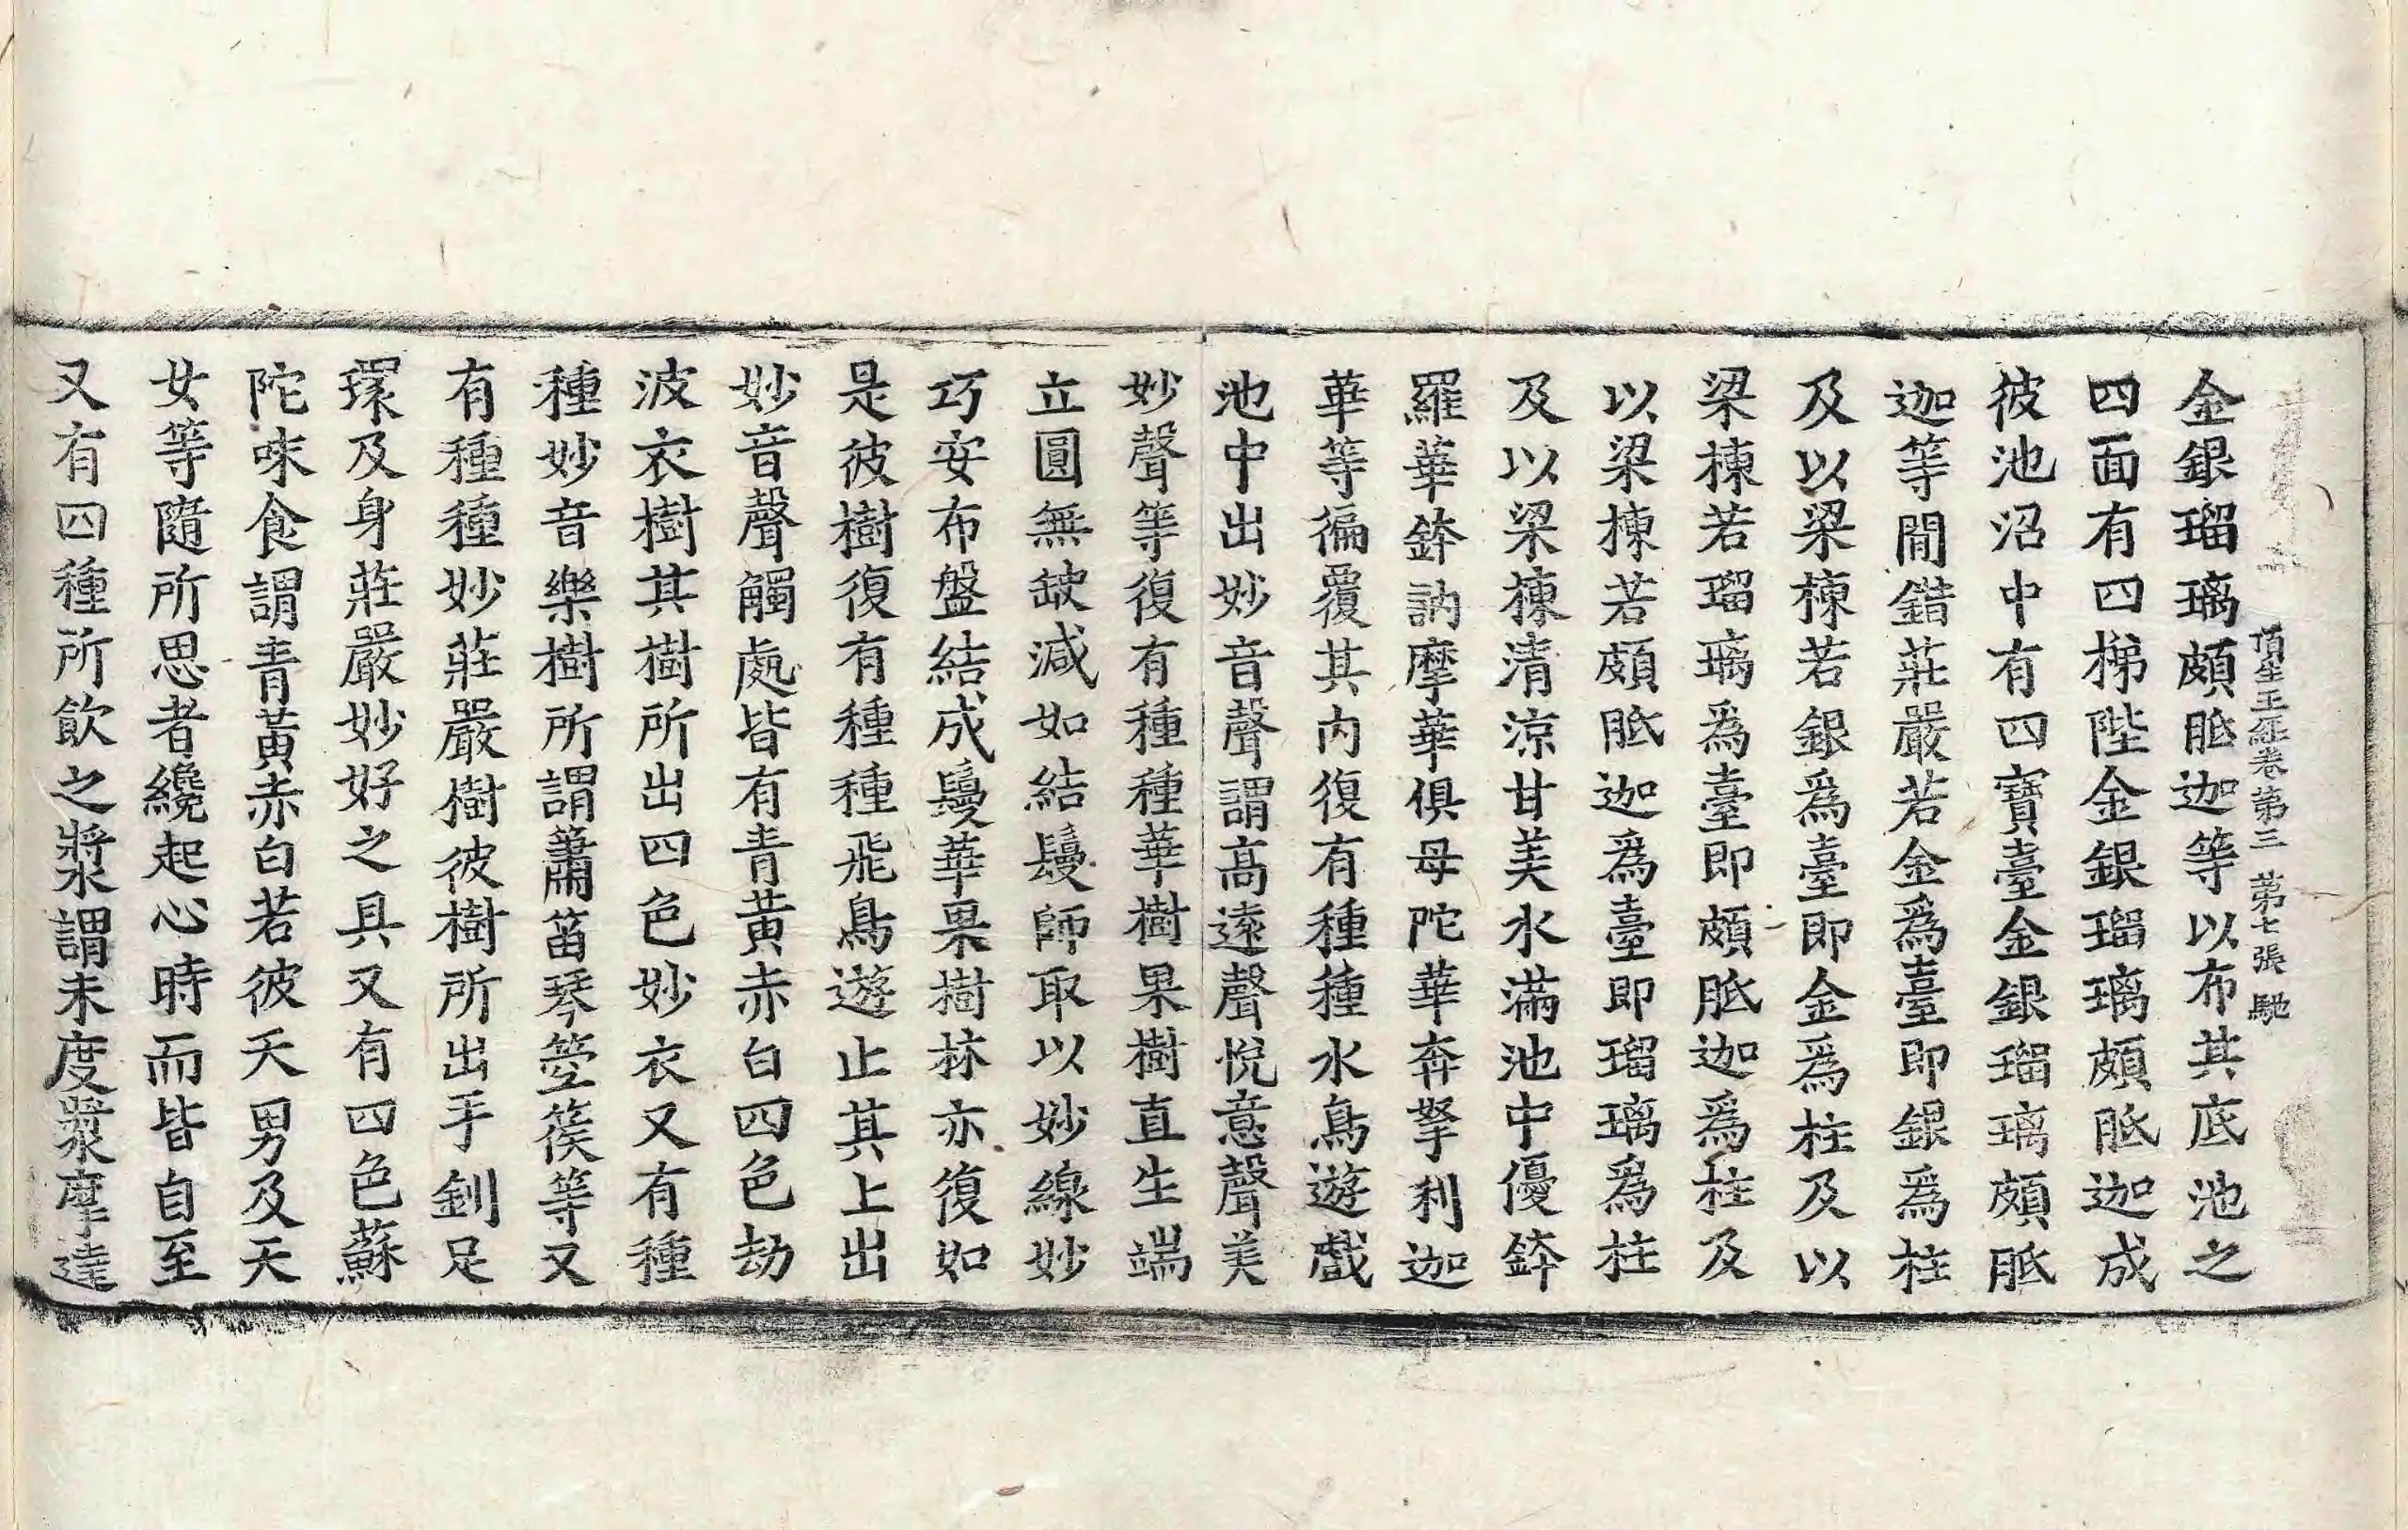 頂生王經卷第三 第七張 馳
金銀瑠璃頗胝迦等以布其底池之
四面有四梯陛金銀瑠璃頗胝迦成
彼池沼中有四寶臺金銀瑠璃頗胝
迦等閒錯莊嚴若金爲臺即銀爲柱
及以梁棟若銀爲臺即金爲柱及以
梁棟若瑠璃爲臺即頗胝迦爲柱及
以梁棟若頗胝迦爲臺即瑠璃爲柱
及以梁棟清涼甘美水滿池中優鉢
羅華鉢訥摩華俱母陀華奔拏利迦
華等徧覆其內復有種種水鳥遊戲
池中出妙音聲謂高遠聲悅意聲美
妙聲等復有種種華樹果樹直生端
立圓無缺減如結鬘師取以妙線妙
巧安布盤結成鬘華果樹林亦復如
是彼樹復有種種飛鳥遊止其上出
妙音聲觸處皆有青黃赤白四色劫
波衣樹其樹所出四色妙衣又有種
種妙音樂樹所謂簫笛琴箜篌等又
有種種妙莊嚴樹彼樹所出手釧足
環及身莊嚴妙好之具又有四色蘇
陀味食謂青黃赤白若彼天男及天
女等隨所思者纔起心時而皆自至
又有四種所飲之漿謂末度漿摩達